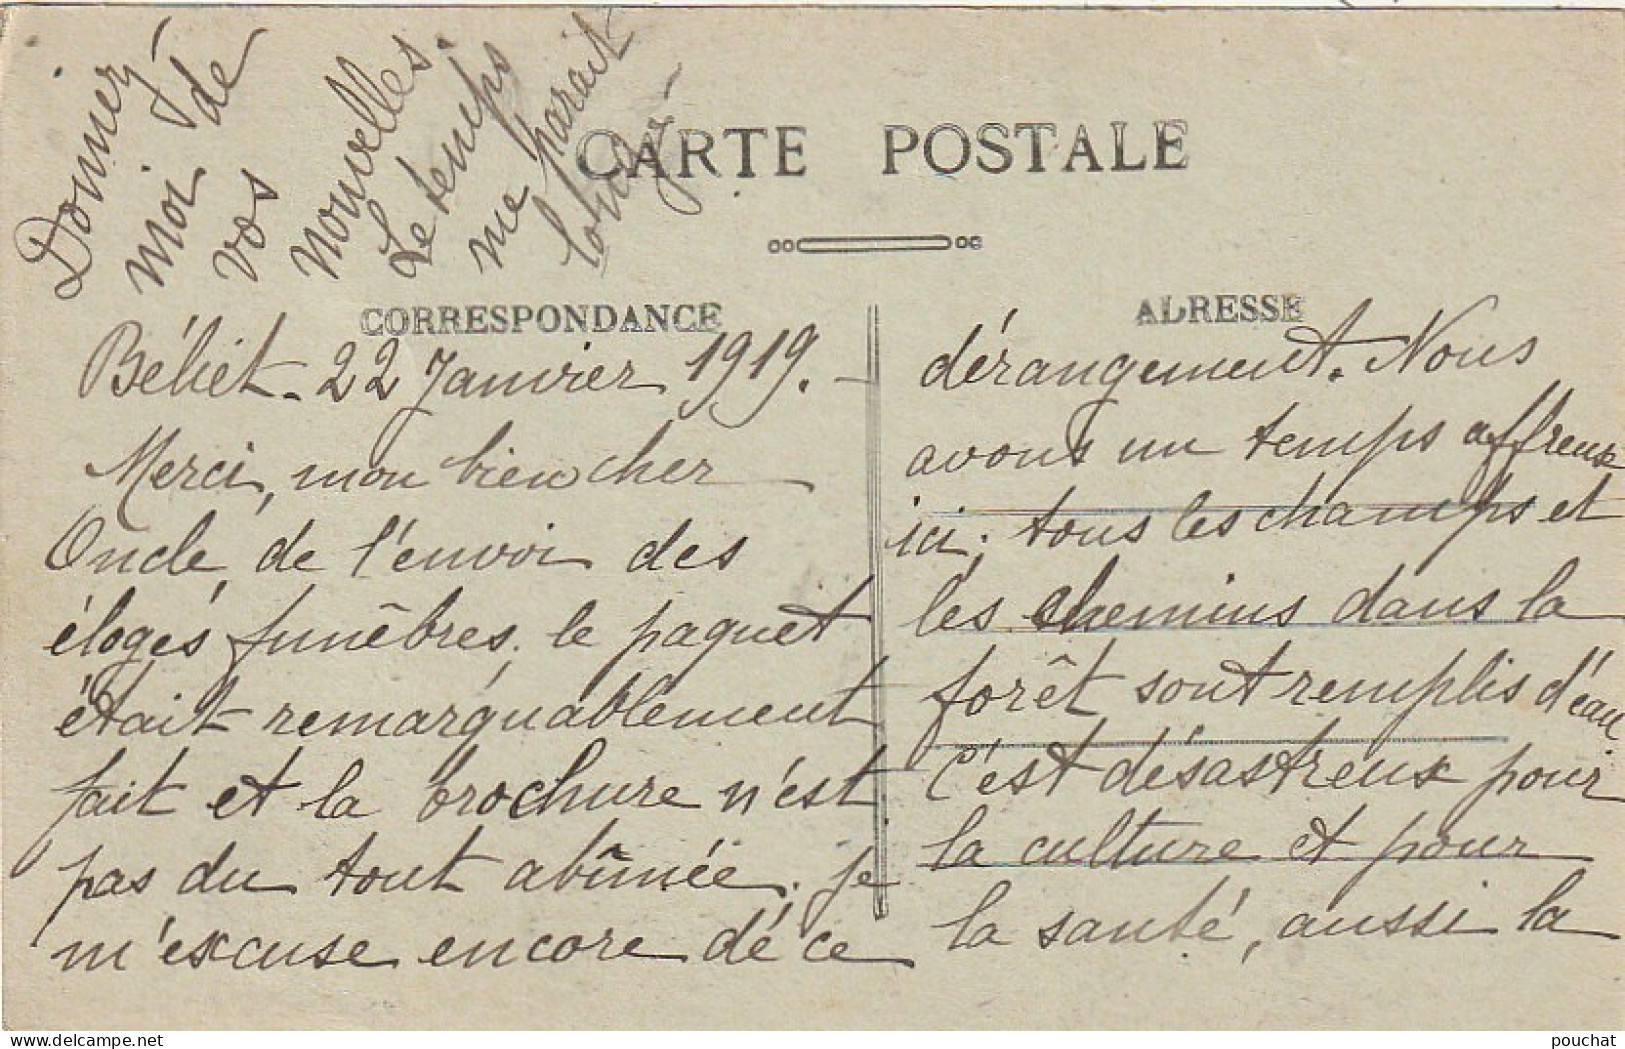 Donnez-
moi de
vos
nouvelles.
Le temps
me parait
long-
CARTE POSTALE
CORRESPONDANCE
Béliet. 22 Janvier 1919. -
Merci, mon bien cher
Oncle, de l'envoi des
éloges funèbres. le paquet
était remarquablement
fait et la brochure n'est
pas du tout abîmée. je
m'excuse encore de ce
ADRESSE
dérangement. Nous
avons un temps affreux
ici; tous les champs et
les chemins dans la
forêt sont remplis d'eau.
C'est désastreux pour
la culture et pour
la santé, aussi la
delcampe.net
pouchat